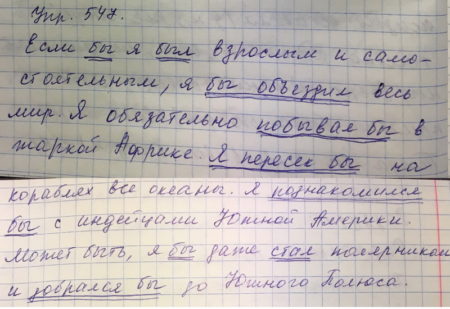 Упр. 547.
Если бы я был взрослым и само-
стоятельным, я бы объездил весь
мир. Я обязательно побывал бы в
жаркой Африке. Я пересек бы на
кораблях все океаны. Я познакомился
бы с индейцами Южной Америки.
Может быть, я бы даже стал полярником
и добрался бы до Южного Полюса.